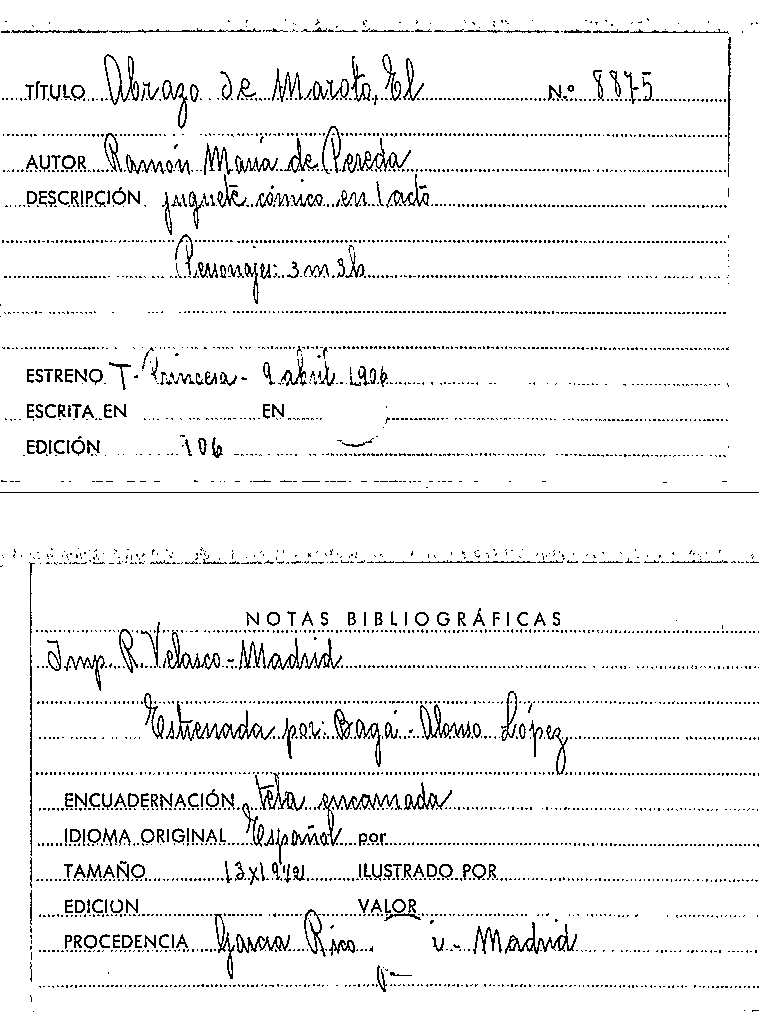 TÍTULO Abrazo de Maroto, El N.º 8875
AUTOR Ramón María de Pereda
DESCRIPCIÓN juguete cómico en 1 acto
Personajes: 3 m 3 h
ESTRENO T. Princesa - 9 abril 1906
ESCRITA EN EN
EDICIÓN 906
NOTAS BIBLIOGRÁFICAS
Imp. R. Velasco - Madrid
Estrenada por: Bagá - Alonso López
ENCUADERNACIÓN tela encarnada
IDIOMA ORIGINAL Español por
TAMAÑO 13x19 ILUSTRADO POR
EDICION VALOR
PROCEDENCIA Garcia Rico - Madrid